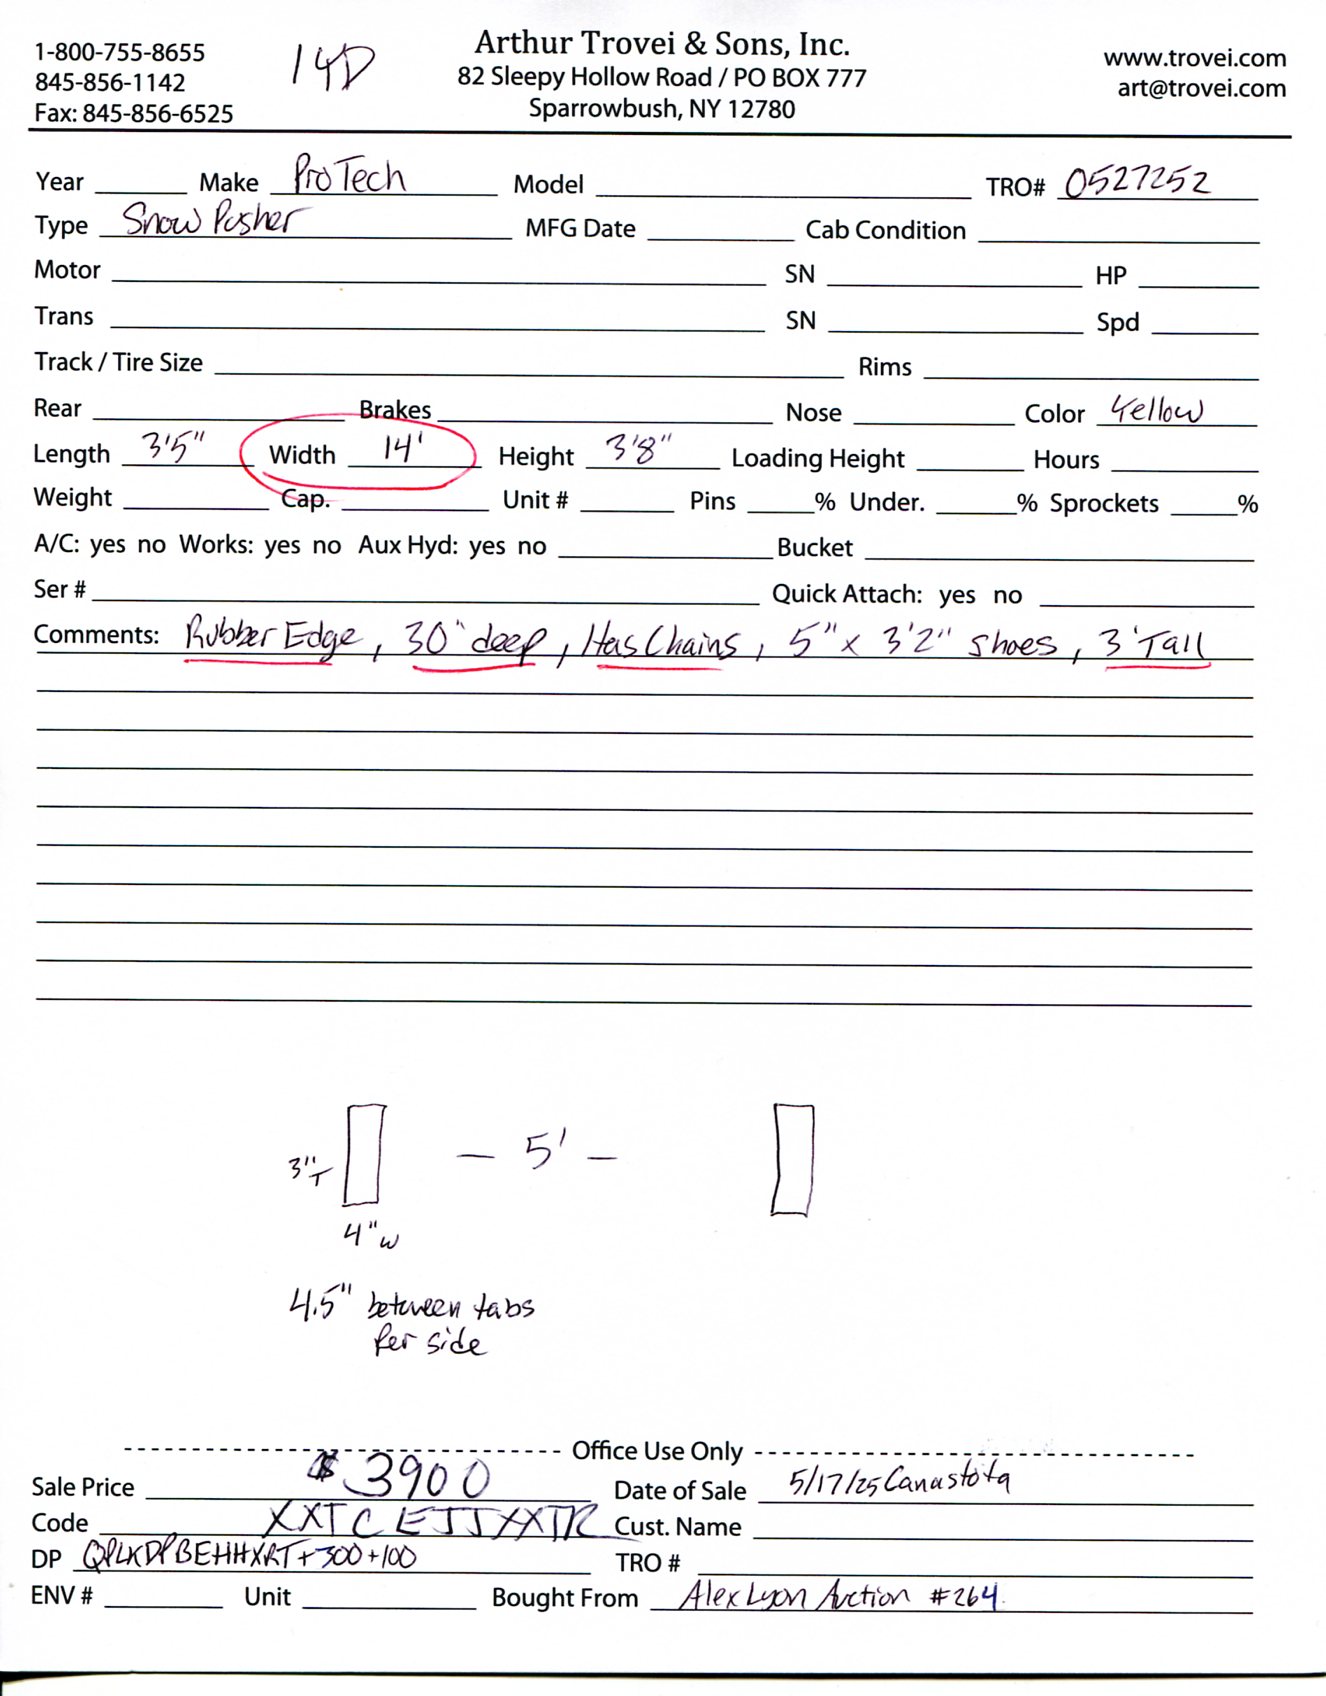 1-800-755-8655
845-856-1142
Fax: 845-856-6525
14D
Arthur Trovei & Sons, Inc.
82 Sleepy Hollow Road / PO BOX 777
Sparrowbush, NY 12780
www.trovei.com
art@trovei.com
Year Make ProTech Model TRO# 0527252
Type Snow Pusher MFG Date Cab Condition
Motor SN HP
Trans SN Spd
Track / Tire Size Rims
Rear Brakes Nose Color Yellow
Length 3'5" Width 14' Height 3'8" Loading Height Hours
Weight Cap. Unit # Pins % Under. % Sprockets %
A/C: yes no Works: yes no Aux Hyd: yes no Bucket
Ser # Quick Attach: yes no
Comments: Rubber Edge, 30" deep, Has Chains, 5" x 3'2" shoes, 3' Tall
3"T - 5' -
4"w
4.5" between tabs
Per side
Office Use Only
Sale Price $3900 Date of Sale 5/17/25 Canastota
Code Cust. Name
DP TRO #
ENV # Unit Bought From Alex Lyon Auction #264